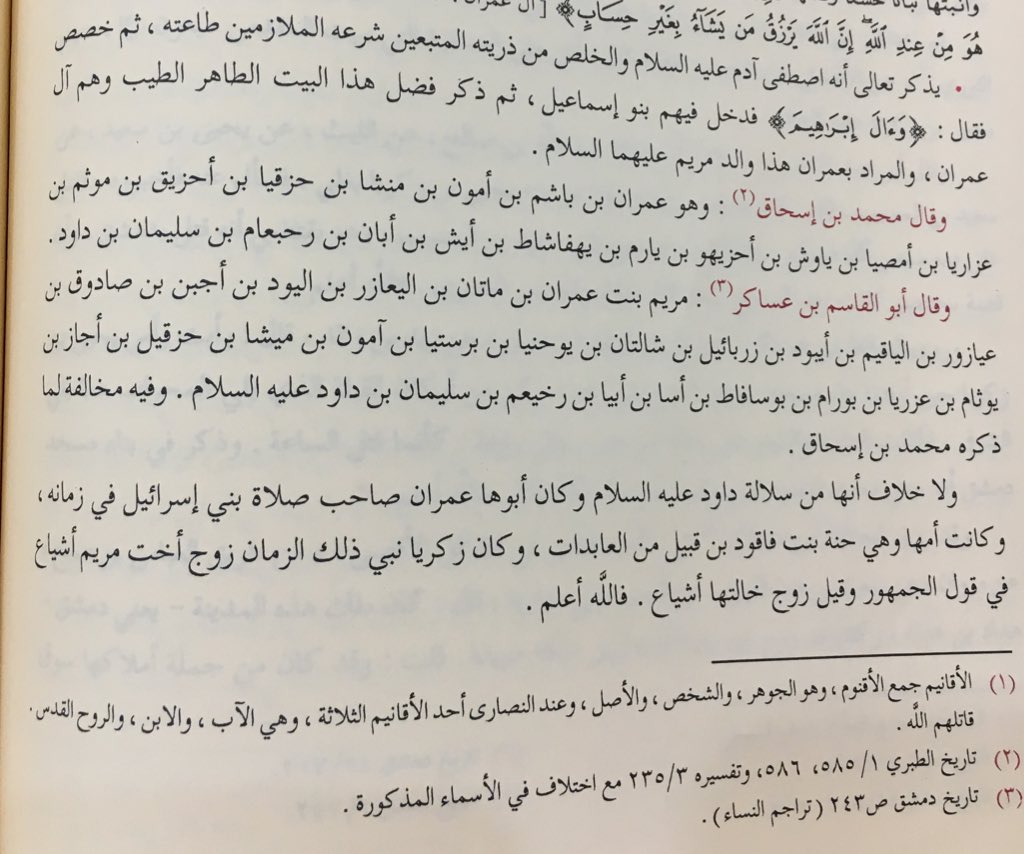 وأنبتها نباتا
هُوَ مِنْ عِندِ اللَّهِ إِنَّ اللَّهَ يَرْزُقُ مَن يَشَآءُ بِغَيْرِ حِسَابٍ﴾ [آل عمران
• يذكر تعالى أنه اصطفى آدم عليه السلام والخلص من ذريته المتبعين شرعه الملازمين طاعته ، ثم خصص
فقال : ﴿وَءَالَ إِبْرَٰهِيمَ﴾ فدخل فيهم بنو إسماعيل ، ثم ذكر فضل هذا البيت الطاهر الطيب وهم آل
عمران ، والمراد بعمران هذا والد مريم عليهما السلام .
وقال محمد بن إسحاق(٢) : وهو عمران بن باشم بن أمون بن منشا بن حزقيا بن أحزيق بن موثم بن
عزاريا بن أمصيا بن ياوش بن أحزيهو بن يارم بن يهفاشاط بن أيش بن أبان بن رحبعام بن سليمان بن داود .
وقال أبو القاسم بن عساكر(٣) : مريم بنت عمران بن ماتان بن اليعازر بن اليود بن أجبن بن صادوق بن
عيازور بن الياقيم بن أيبود بن زربائيل بن شالتان بن يوحنيا بن برستيا بن آمون بن ميشا بن حزقيل بن أجاز بن
يوثام بن عزريا بن بورام بن بوسافاط بن أسا بن أبيا بن رخيعم بن سليمان بن داود عليه السلام . وفيه مخالفة لما
ذكره محمد بن إسحاق .
ولا خلاف أنها من سلالة داود عليه السلام وكان أبوها عمران صاحب صلاة بني إسرائيل في زمانه ،
وكانت أمها وهي حنة بنت فاقود بن قبيل من العابدات ، وكان زكريا نبي ذلك الزمان زوج أخت مريم أشياع
في قول الجمهور وقيل زوج خالتها أشياع . فاللَّه أعلم .
(١) الأقانيم جمع الأقنوم ، وهو الجوهر ، والشخص ، والأصل ، وعند النصارى أحد الأقانيم الثلاثة ، وهي الآب ، والابن ، والروح القدس .
قاتلهم اللَّه .
(٢) تاريخ الطبري ١/ ٥٨٥، ٥٨٦ ، وتفسيره ٢٣٥/٣ مع اختلاف في الأسماء المذكورة .
(٣) تاريخ دمشق ص٢٤٣ (تراجم النساء) .